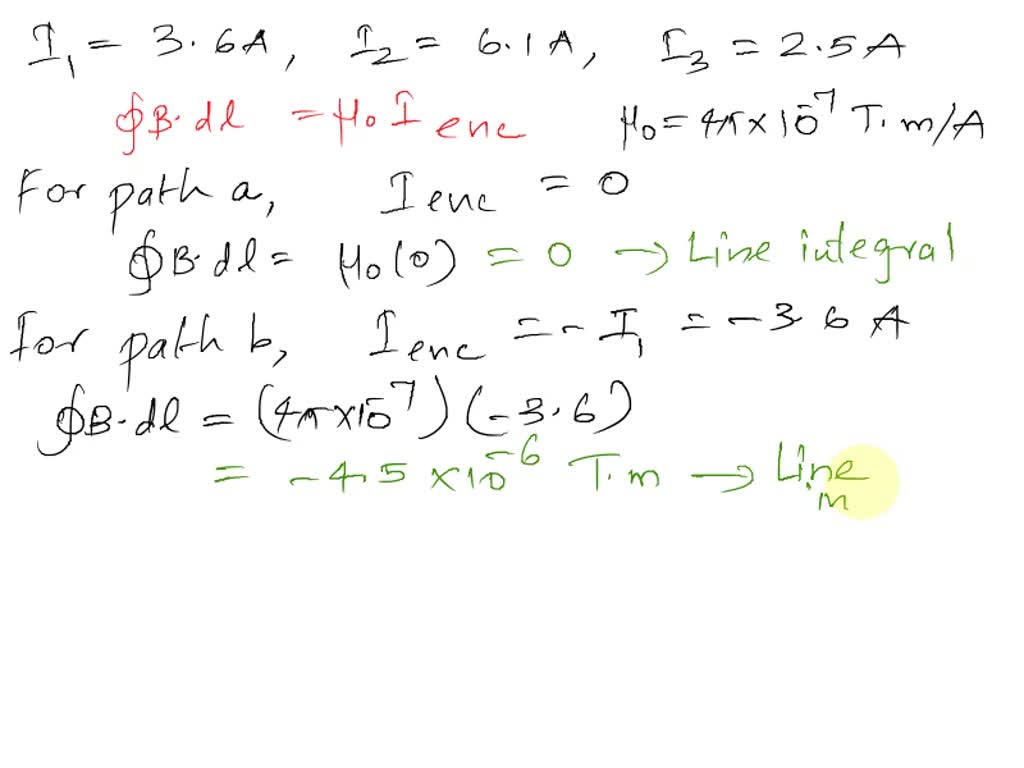 I₁ = 3.6A, I₂ = 6.1A, I₃ = 2.5A
∮B.dl = μ₀I enc μ₀ = 4π×10⁻⁷ T.m/A
For path a, I enc = 0
∮B.dl = μ₀(0) = 0 → Line integral
For path b, I enc = -I₁ = -3.6A
∮B.dl = (4π×10⁻⁷)(-3.6)
= -4.5×10⁻⁶ T.m → Line
in